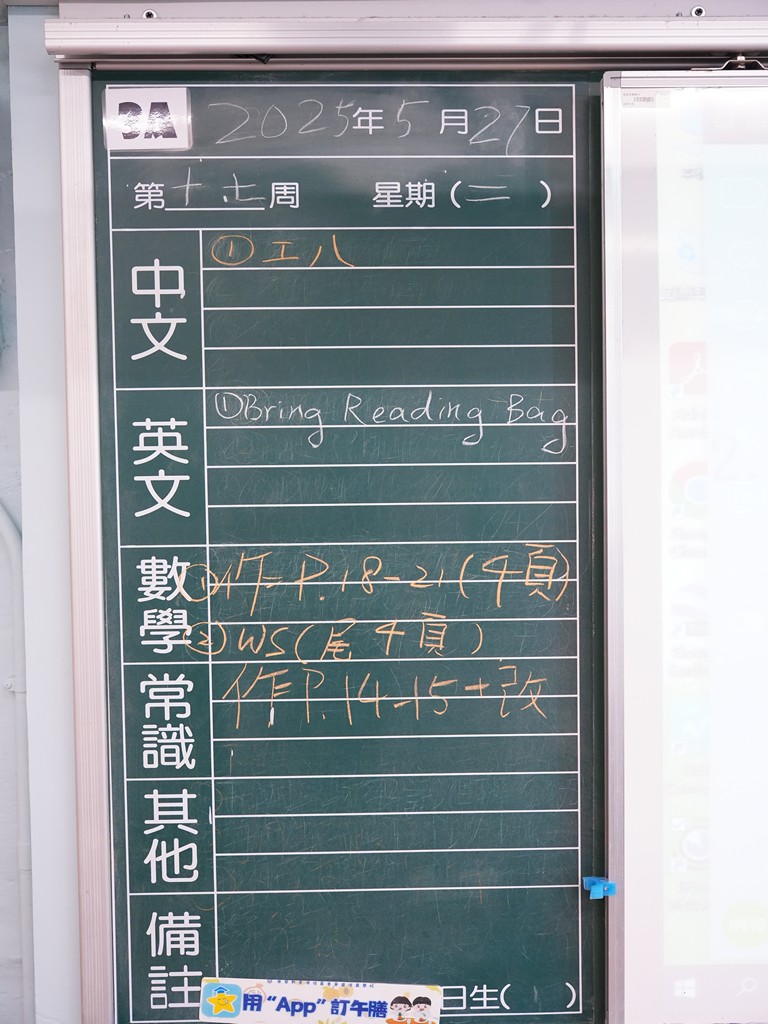 3A 2025年5月27日
第十七周 星期(二)
中文
①工八
英文
①Bring Reading Bag
數學
①作=P.18-21(4頁)
②WS(尾4頁)
常識
作P.14-15+改
其他
備註
日生( )
用“App”訂午膳